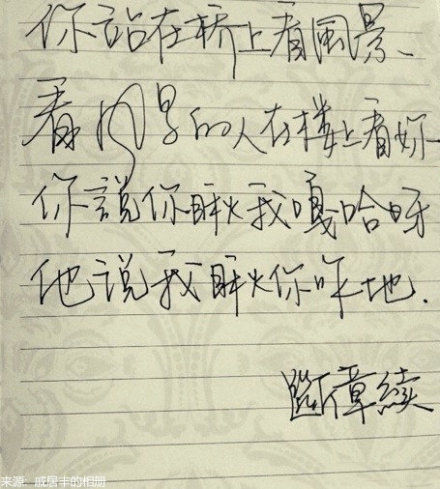 你站在桥上看風景、
看风景的人在楼上看妳
你說你瞅我嘎哈呀
他说我瞅你咋地.
斷章續
来源: 戚居丰的相册